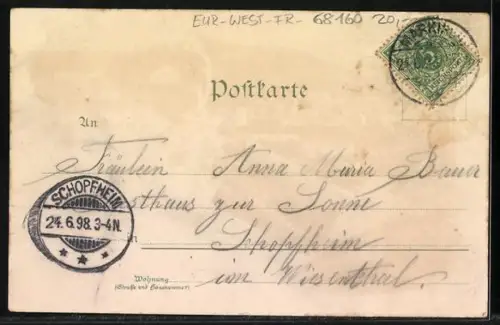 EUR-WEST-FR- 68160 20,-
Postkarte
An
Fräulein Anna Maria Bauer
Gasthaus zur Sonne
in Schopfheim
im Wiesenthal.
Wohnung
(Straße und Hausnummer)
SCHOPFHEIM
24.6.98.3-4N.